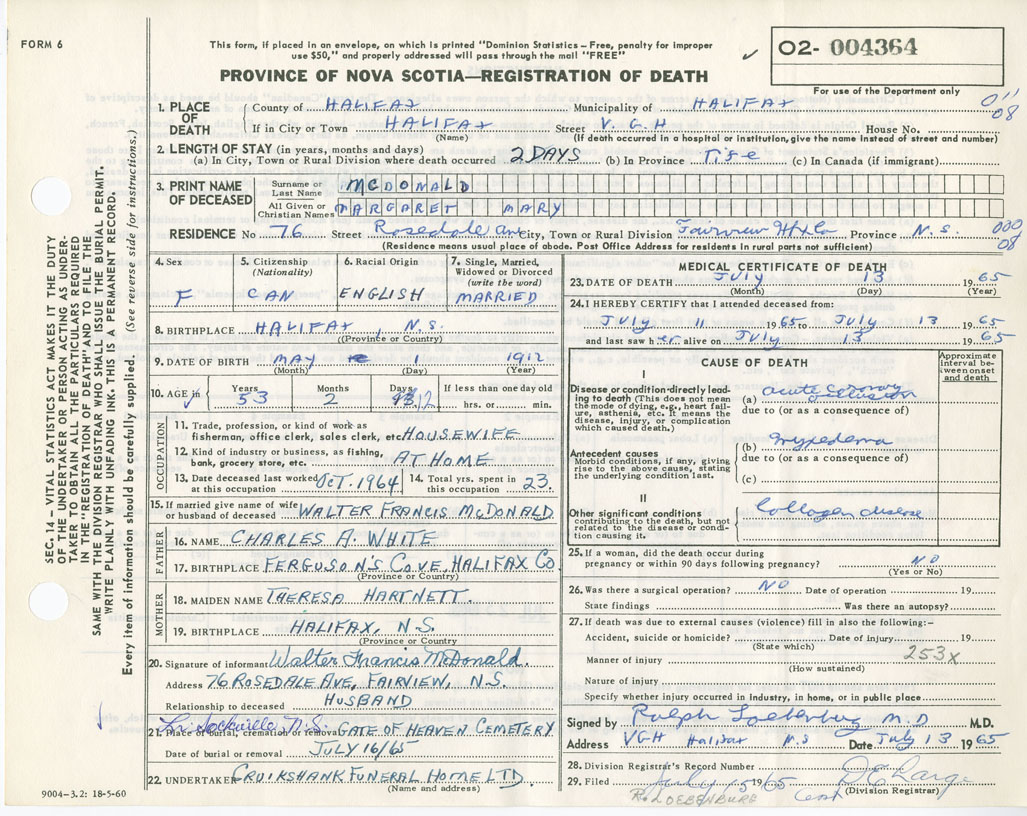 FORM 6
This form, if placed in an envelope, on which is printed "Dominion Statistics – Free, penalty for improper
use $50," and properly addressed will pass through the mail "FREE"
✓ O2- 004364
PROVINCE OF NOVA SCOTIA—REGISTRATION OF DEATH
For use of the Department only
011
08
1. PLACE OF DEATH County of HALIFAX Municipality of HALIFAX
If in City or Town HALIFAX Street V.G.H House No.
(Name) (If death occurred in a hospital or institution, give the name instead of street and number)
2. LENGTH OF STAY (in years, months and days)
(a) In City, Town or Rural Division where death occurred 2 DAYS (b) In Province Life (c) In Canada (if immigrant)
3. PRINT NAME OF DECEASED
Surname or Last Name MCDONALD
All Given or Christian Names MARGARET MARY
RESIDENCE No 76 Street Rosedale Ave City, Town or Rural Division Fairview Hfx Co Province N.S.
000
08
(Residence means usual place of abode. Post Office Address for residents in rural parts not sufficient)
4. Sex F
5. Citizenship (Nationality) CAN
6. Racial Origin ENGLISH
7. Single, Married, Widowed or Divorced (write the word) MARRIED
8. BIRTHPLACE HALIFAX, N.S.
(Province or Country)
9. DATE OF BIRTH MAY 1 1912
(Month) (Day) (Year)
10. AGE in Years 53 Months 2 Days 12 If less than one day old hrs. or min.
OCCUPATION
11. Trade, profession, or kind of work as
fisherman, office clerk, sales clerk, etc. HOUSEWIFE
12. Kind of industry or business, as fishing,
bank, grocery store, etc. AT HOME
13. Date deceased last worked at this occupation OCT. 1964 14. Total yrs. spent in this occupation 23
15. If married give name of wife or husband of deceased WALTER FRANCIS MCDONALD
FATHER
16. NAME CHARLES A. WHITE
17. BIRTHPLACE FERGUSON'S COVE, HALIFAX CO
(Province or Country)
MOTHER
18. MAIDEN NAME THERESA HARTNETT
19. BIRTHPLACE HALIFAX, N.S.
(Province or Country)
20. Signature of informant Walter Francis McDonald
Address 76 ROSEDALE AVE, FAIRVIEW, N.S.
Relationship to deceased HUSBAND
L. Sackville N.S.
21. Place of burial, cremation or removal GATE OF HEAVEN CEMETERY
Date of burial or removal JULY 16/65
22. UNDERTAKER CRUIKSHANK FUNERAL HOME LTD
(Name and address)
MEDICAL CERTIFICATE OF DEATH
23. DATE OF DEATH July 13 1965
(Month) (Day) (Year)
24. I HEREBY CERTIFY that I attended deceased from:
July 11 1965 to July 13 1965
and last saw her alive on July 13 1965
CAUSE OF DEATH
Approximate interval between onset and death
I
Disease or condition directly leading to death (This does not mean the mode of dying, e.g., heart failure, asthenia, etc. It means the disease, injury, or complication which caused death.)
(a) acute coronary occlusion
due to (or as a consequence of)
Antecedent causes
Morbid conditions, if any, giving rise to the above cause, stating the underlying condition last.
(b) myxedema
due to (or as a consequence of)
(c)
II
Other significant conditions
contributing to the death, but not related to the disease or condition causing it.
Collagen disease
25. If a woman, did the death occur during
pregnancy or within 90 days following pregnancy? NO
(Yes or No)
26. Was there a surgical operation? NO Date of operation 19
State findings Was there an autopsy?
27. If death was due to external causes (violence) fill in also the following:–
Accident, suicide or homicide? Date of injury 19
(State which) 253x
Manner of injury
(How sustained)
Nature of injury
Specify whether injury occurred in industry, in home, or in public place
Signed by Ralph Loebenberg M.D M.D.
Address VGH Halifax N.S Date July 13 1965
28. Division Registrar's Record Number
29. Filed July 15 1965
(Division Registrar)
R. LOEBENBURG
SEC. 14 – VITAL STATISTICS ACT MAKES IT THE DUTY
OF THE UNDERTAKER OR PERSON ACTING AS UNDER-
TAKER TO OBTAIN ALL THE PARTICULARS REQUIRED
IN THE "REGISTRATION OF DEATH" AND TO FILE THE
SAME WITH THE DIVISION REGISTRAR WHO SHALL ISSUE THE BURIAL PERMIT.
WRITE PLAINLY WITH UNFADING INK. THIS IS A PERMANENT RECORD.
Every item of information should be carefully supplied. (See reverse side for instructions.)
9004–3.2: 18-5-60